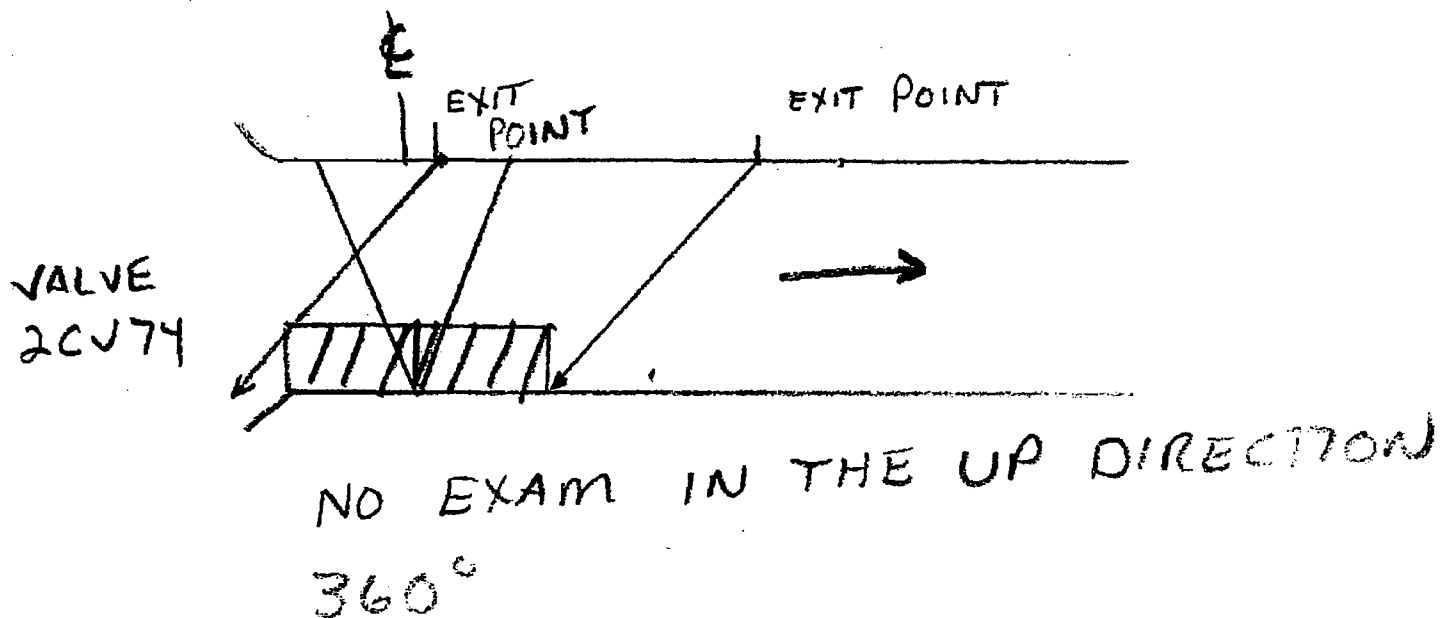 ℄
EXIT
POINT
EXIT POINT
VALVE
2CV74
NO EXAM IN THE UP DIRECTION
360°